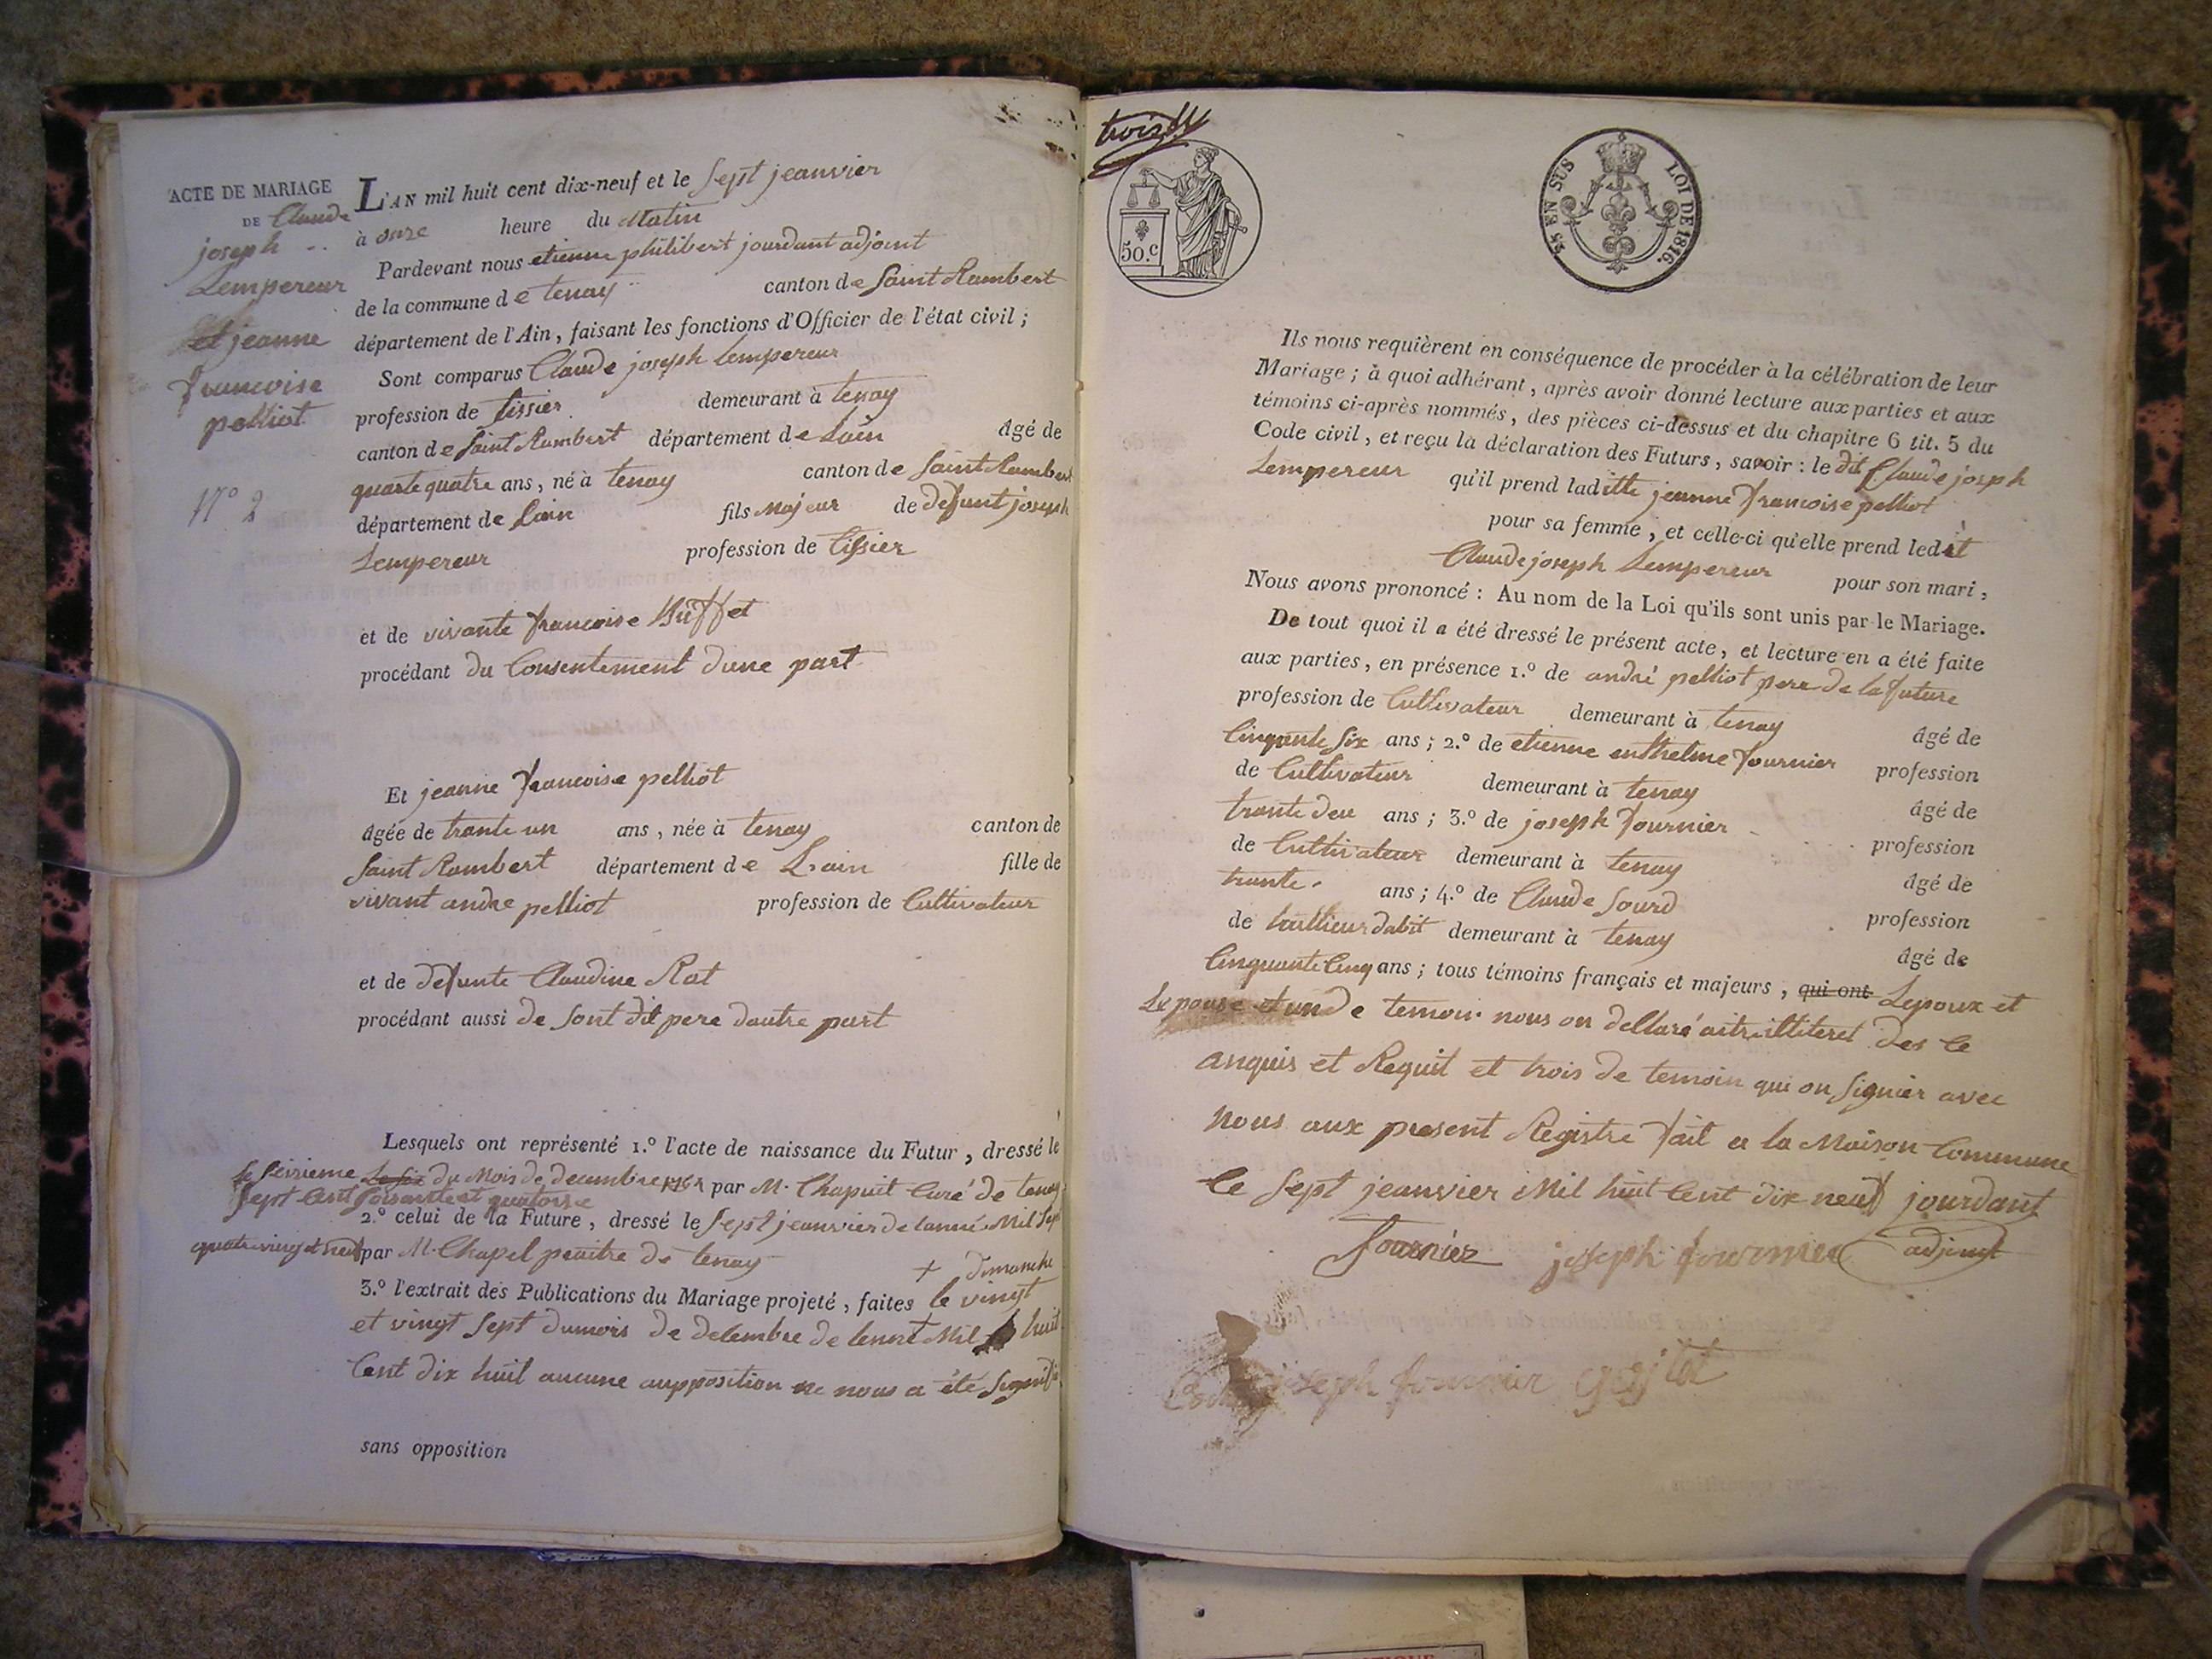 ACTE DE MARIAGE
DE Claude
joseph ..
Lempereur
et jeanne
francoise
pelliot
N° 2
L'AN mil huit cent dix-neuf et le sept jeanvier
à onze heure du Matin
Pardevant nous etienne philibert jourdant adjoint
de la commune de tenay canton de Saint Rambert
département de l'Ain, faisant les fonctions d'Officier de l'état civil ;
Sont comparus Claude joseph Lempereur
profession de tissier demeurant à tenay
canton de Saint Rambert département de Lain âgé de
quarte quatre ans, né à tenay canton de Saint Rambert
département de Lain fils Majeur de defunt joseph
Lempereur profession de tissier
et de vivante francoise Buffet
procédant du Consentement dune part
Et jeanne francoise pelliot
âgée de trante un ans, née à tenay canton de
Saint Rambert département de Lain fille de
vivant andre pelliot profession de Cultivateur
et de defunte Claudine Rat
procédant aussi de sont dit pere dautre part
Lesquels ont représenté 1.º l'acte de naissance du Futur, dressé le
le seizieme Le six du Mois de decembre par M. Chapuit Curé de tenay
sept Cent soisante et quatorse
2.º celui de la Future, dressé le sept jeanvier de lanné Mil sept
quatrevingt neuf par M. Chapel pretre de tenay
+ dimanche
3.º l'extrait des Publications du Mariage projeté, faites le vingt
et vingt sept dumois de decembre de lenné + Mil huit
Cent dix huit aucune aupposition ne nous a été signifié
sans opposition
trois
50.C
25 EN SUS LOI DE 1816.
Ils nous requièrent en conséquence de procéder à la célébration de leur
Mariage ; à quoi adhérant, après avoir donné lecture aux parties et aux
témoins ci-après nommés, des pièces ci-dessus et du chapitre 6 tit. 5 du
Code civil, et reçu la déclaration des Futurs, savoir : le dit Claude joseph
Lempereur qu'il prend laditte jeanne francoise pelliot
pour sa femme, et celle-ci qu'elle prend ledit
Claude joseph Lempereur pour son mari,
Nous avons prononcé : Au nom de la Loi qu'ils sont unis par le Mariage.
De tout quoi il a été dressé le présent acte, et lecture en a été faite
aux parties, en présence 1.º de andré pelliot pere de la future
profession de Cultivateur demeurant à tenay âgé de
Cinquante six ans ; 2.º de etienne enthelme fournier profession
de Cultivateur demeurant à tenay âgé de
trante deu ans ; 3.º de joseph fournier profession
de Cultivateur demeurant à tenay âgé de
trante. ans ; 4.º de Claude Sourd profession
de taillieur dabit demeurant à tenay âgé de
Cinquante Cinq ans ; tous témoins français et majeurs, qui ont Lepoux et
Lepouse et un de temoin nous on dellaré aitre illiteret des ce
anquis et Requit et trois de temoin qui on signier avec
nous aux present Registre fait a la Maison Commune
le sept jeanvier Mil huit Cent dix neuf jourdant
fournier joseph fournier adjoint
joseph fournier